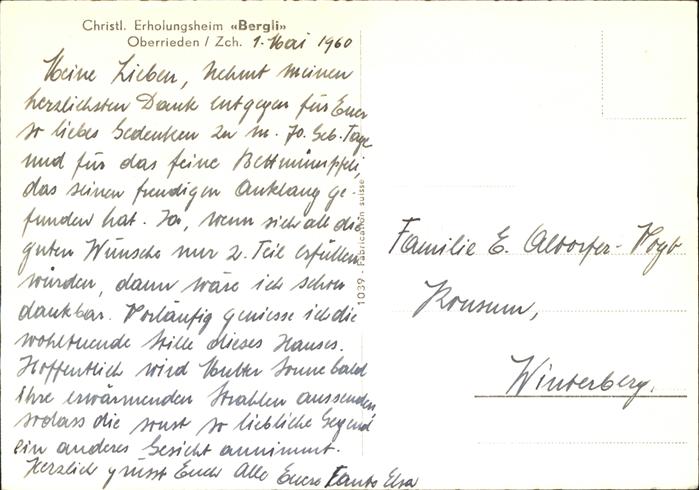 Christl. Erholungsheim «Bergli»
Oberrieden / Zch. 1. Mai 1960
Meine Lieben, Nehmt meinen
herzlichsten Dank entgegen für Euer
so liebes Gedenken zu m. 70. Geb. Tage
und für das feine Bettmümpfeli,
das seinen freudigen Anklang ge-
funden hat. Ja, wenn sich all die
guten Wünsche nur z. Teil erfüllen
würden, dann wäre ich schon
dankbar. Vorläufig geniesse ich die
wohltuende Stille dieses Hauses.
Hoffentlich wird Mutter Sonne bald
ihre erwärmenden Strahlen aussenden,
sodass die sonst so liebliche Gegend
ein anderes Gesicht annimmt.
Herzlich grüsst Euch Alle Euere Tante Elsa
1039 - Fabrication suisse
Familie E. Altorfer-Vogt
Konsum,
Winterberg.